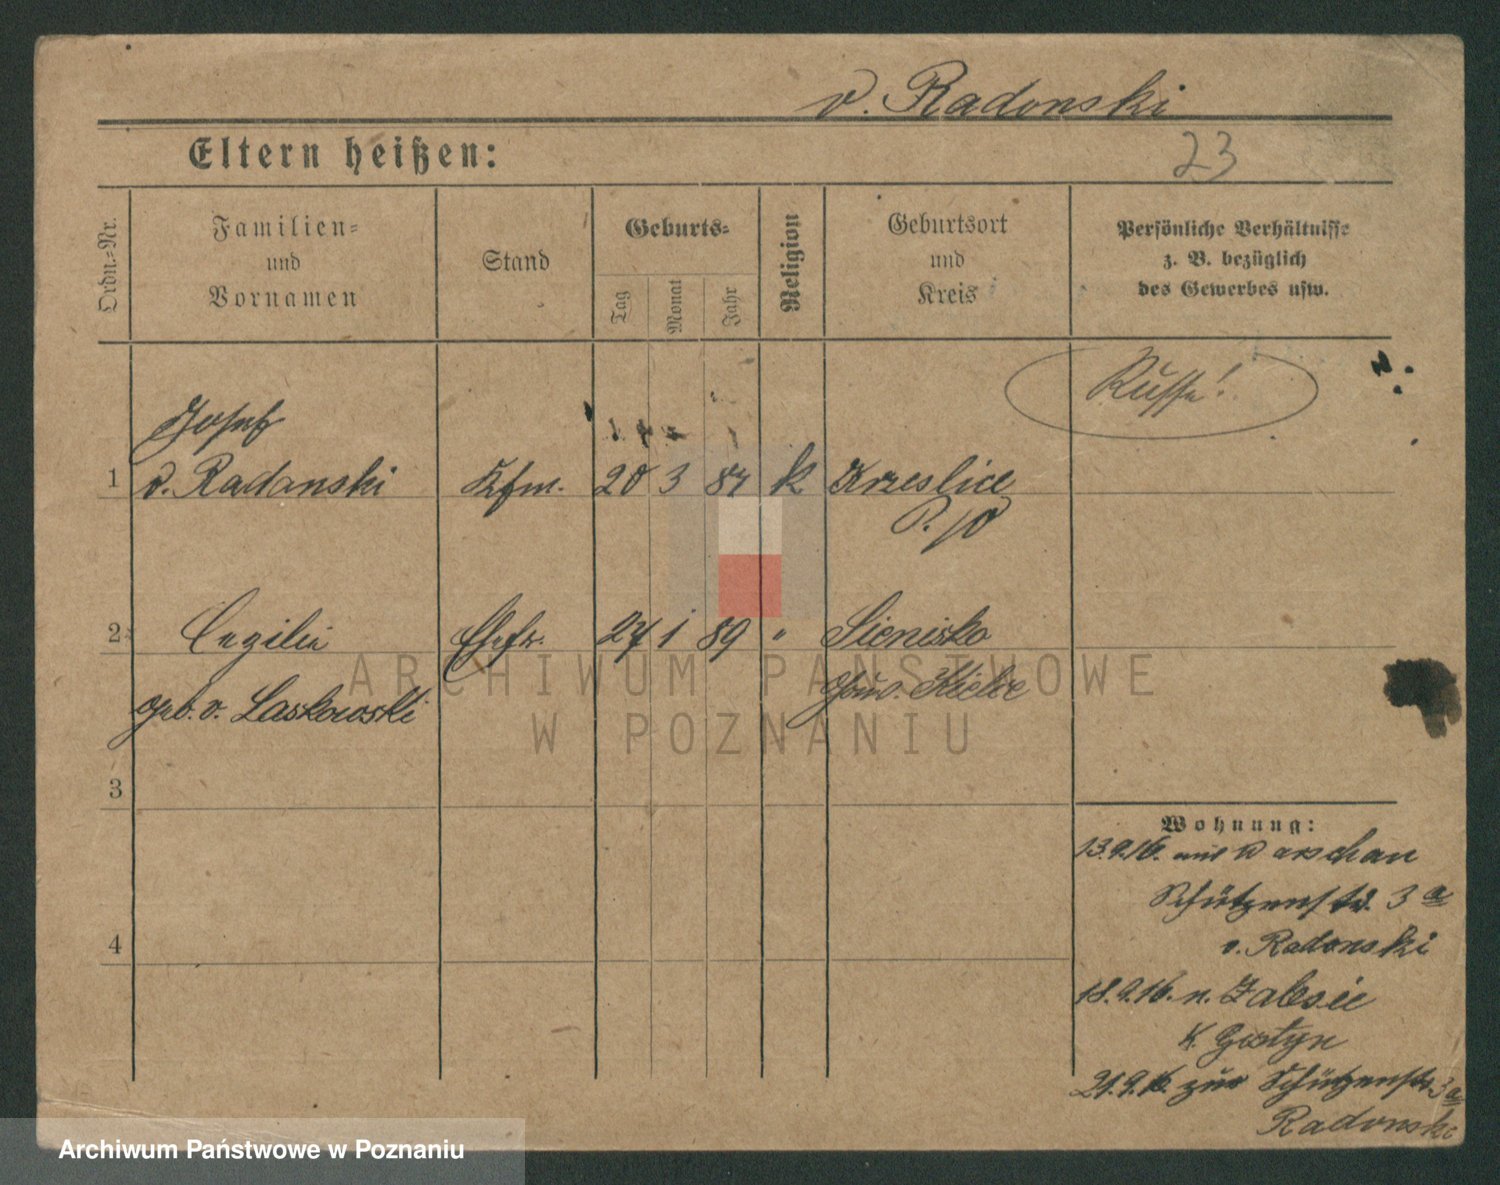 v. Radonski
Eltern heißen:
23
Ordn.-Nr.
Familien-
und
Vornamen
Stand
Geburts-
Tag
Monat
Jahr
Religion
Geburtsort
und
Kreis
Persönliche Verhältnisse
z. B. bezüglich
des Gewerbes usw.
Russe!
Josef
1 v. Radanski Kfm. 20 3 87 k Krzeslice
P. O
2 Cezilie Ehefr. 27 1 89 " Sienisko
geb. v. Laskowski Gouv. Kielce
3
4
Wohnung:
13.9.16. aus Warschau
Schützenstr. 3 a
v. Radonski
18.9.16. n. Zalesie
K. Gostyn
21.9.16. zur Schützenstr. 3 a
Radonski
ARCHIWUM PAŃSTWOWE
W POZNANIU
Archiwum Państwowe w Poznaniu